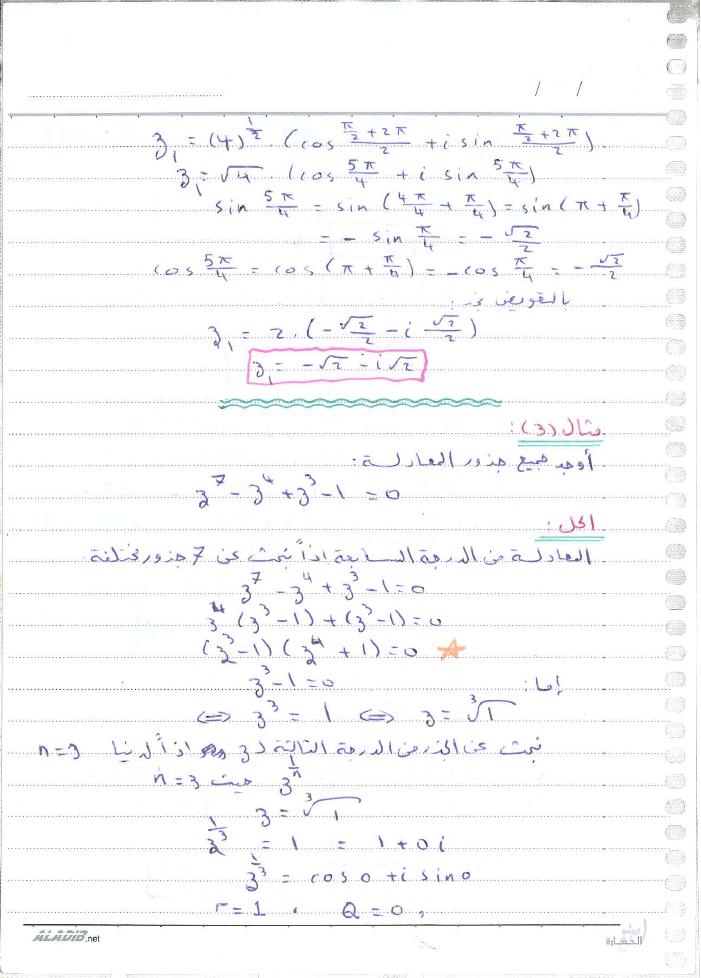 / /
z₁ = (4)^(1/2) · (cos (π/2 + 2π)/2 + i sin (π/2 + 2π)/2)
z₁ = √4 · (cos 5π/4 + i sin 5π/4)
sin 5π/4 = sin (4π/4 + π/4) = sin (π + π/4)
= - sin π/4 = - √2/2
cos 5π/4 = cos (π + π/4) = -cos π/4 = - √2/2
بالتعويض نجد:
z₁ = 2 · (- √2/2 - i √2/2)
z₁ = -√2 - i√2
مثال (3):
أوجد جميع جذور المعادلة:
z⁷ - z⁴ + z³ - 1 = 0
الحل:
المعادلة من الدرجة السابعة اذاً نبحث عن 7 جذور مختلفة
z⁷ - z⁴ + z³ - 1 = 0
z⁴ (z³ - 1) + (z³ - 1) = 0
(z³ - 1) (z⁴ + 1) = 0
إما: z³ - 1 = 0
⇔ z³ = 1 ⇔ z = ∛1
نبحث عن الجذر من الدرجة الثالثة لـ z اذاً لدينا n = 3
z^(1/n) حيث n = 3
z = ∛1
z^(1/3) = 1 = 1 + 0 i
z^(1/3) = cos 0 + i sin 0
r = 1 , Q = 0 ,
ALADIB.net
الحضارة